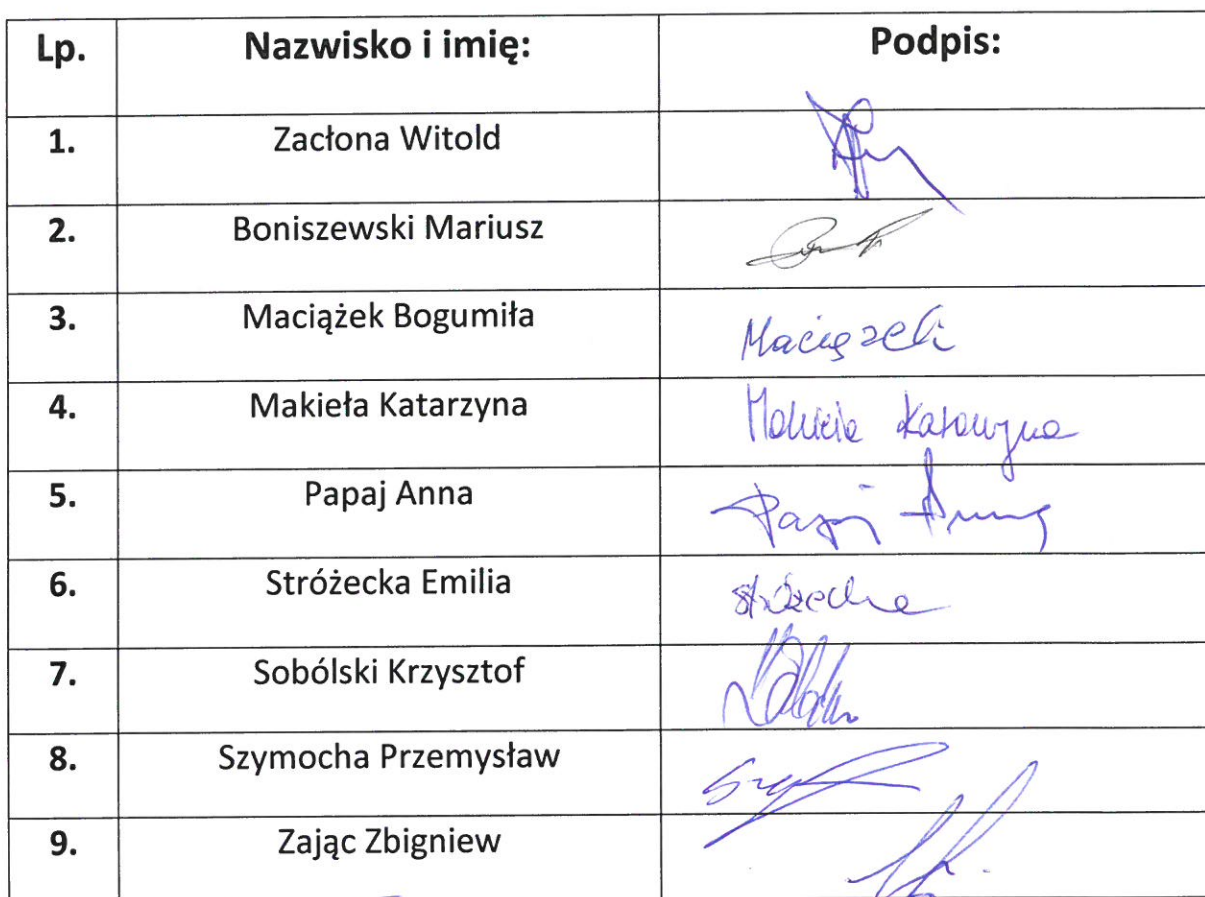 Lp. Nazwisko i imię: Podpis:
1. Zacłona Witold
2. Boniszewski Mariusz
3. Maciążek Bogumiła Maciążek
4. Makieła Katarzyna Makieła Katarzyna
5. Papaj Anna Papaj Anna
6. Stróżecka Emilia Stróżecka
7. Sobólski Krzysztof
8. Szymocha Przemysław
9. Zając Zbigniew